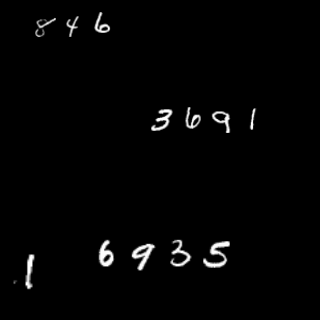 846
3691
6935
1